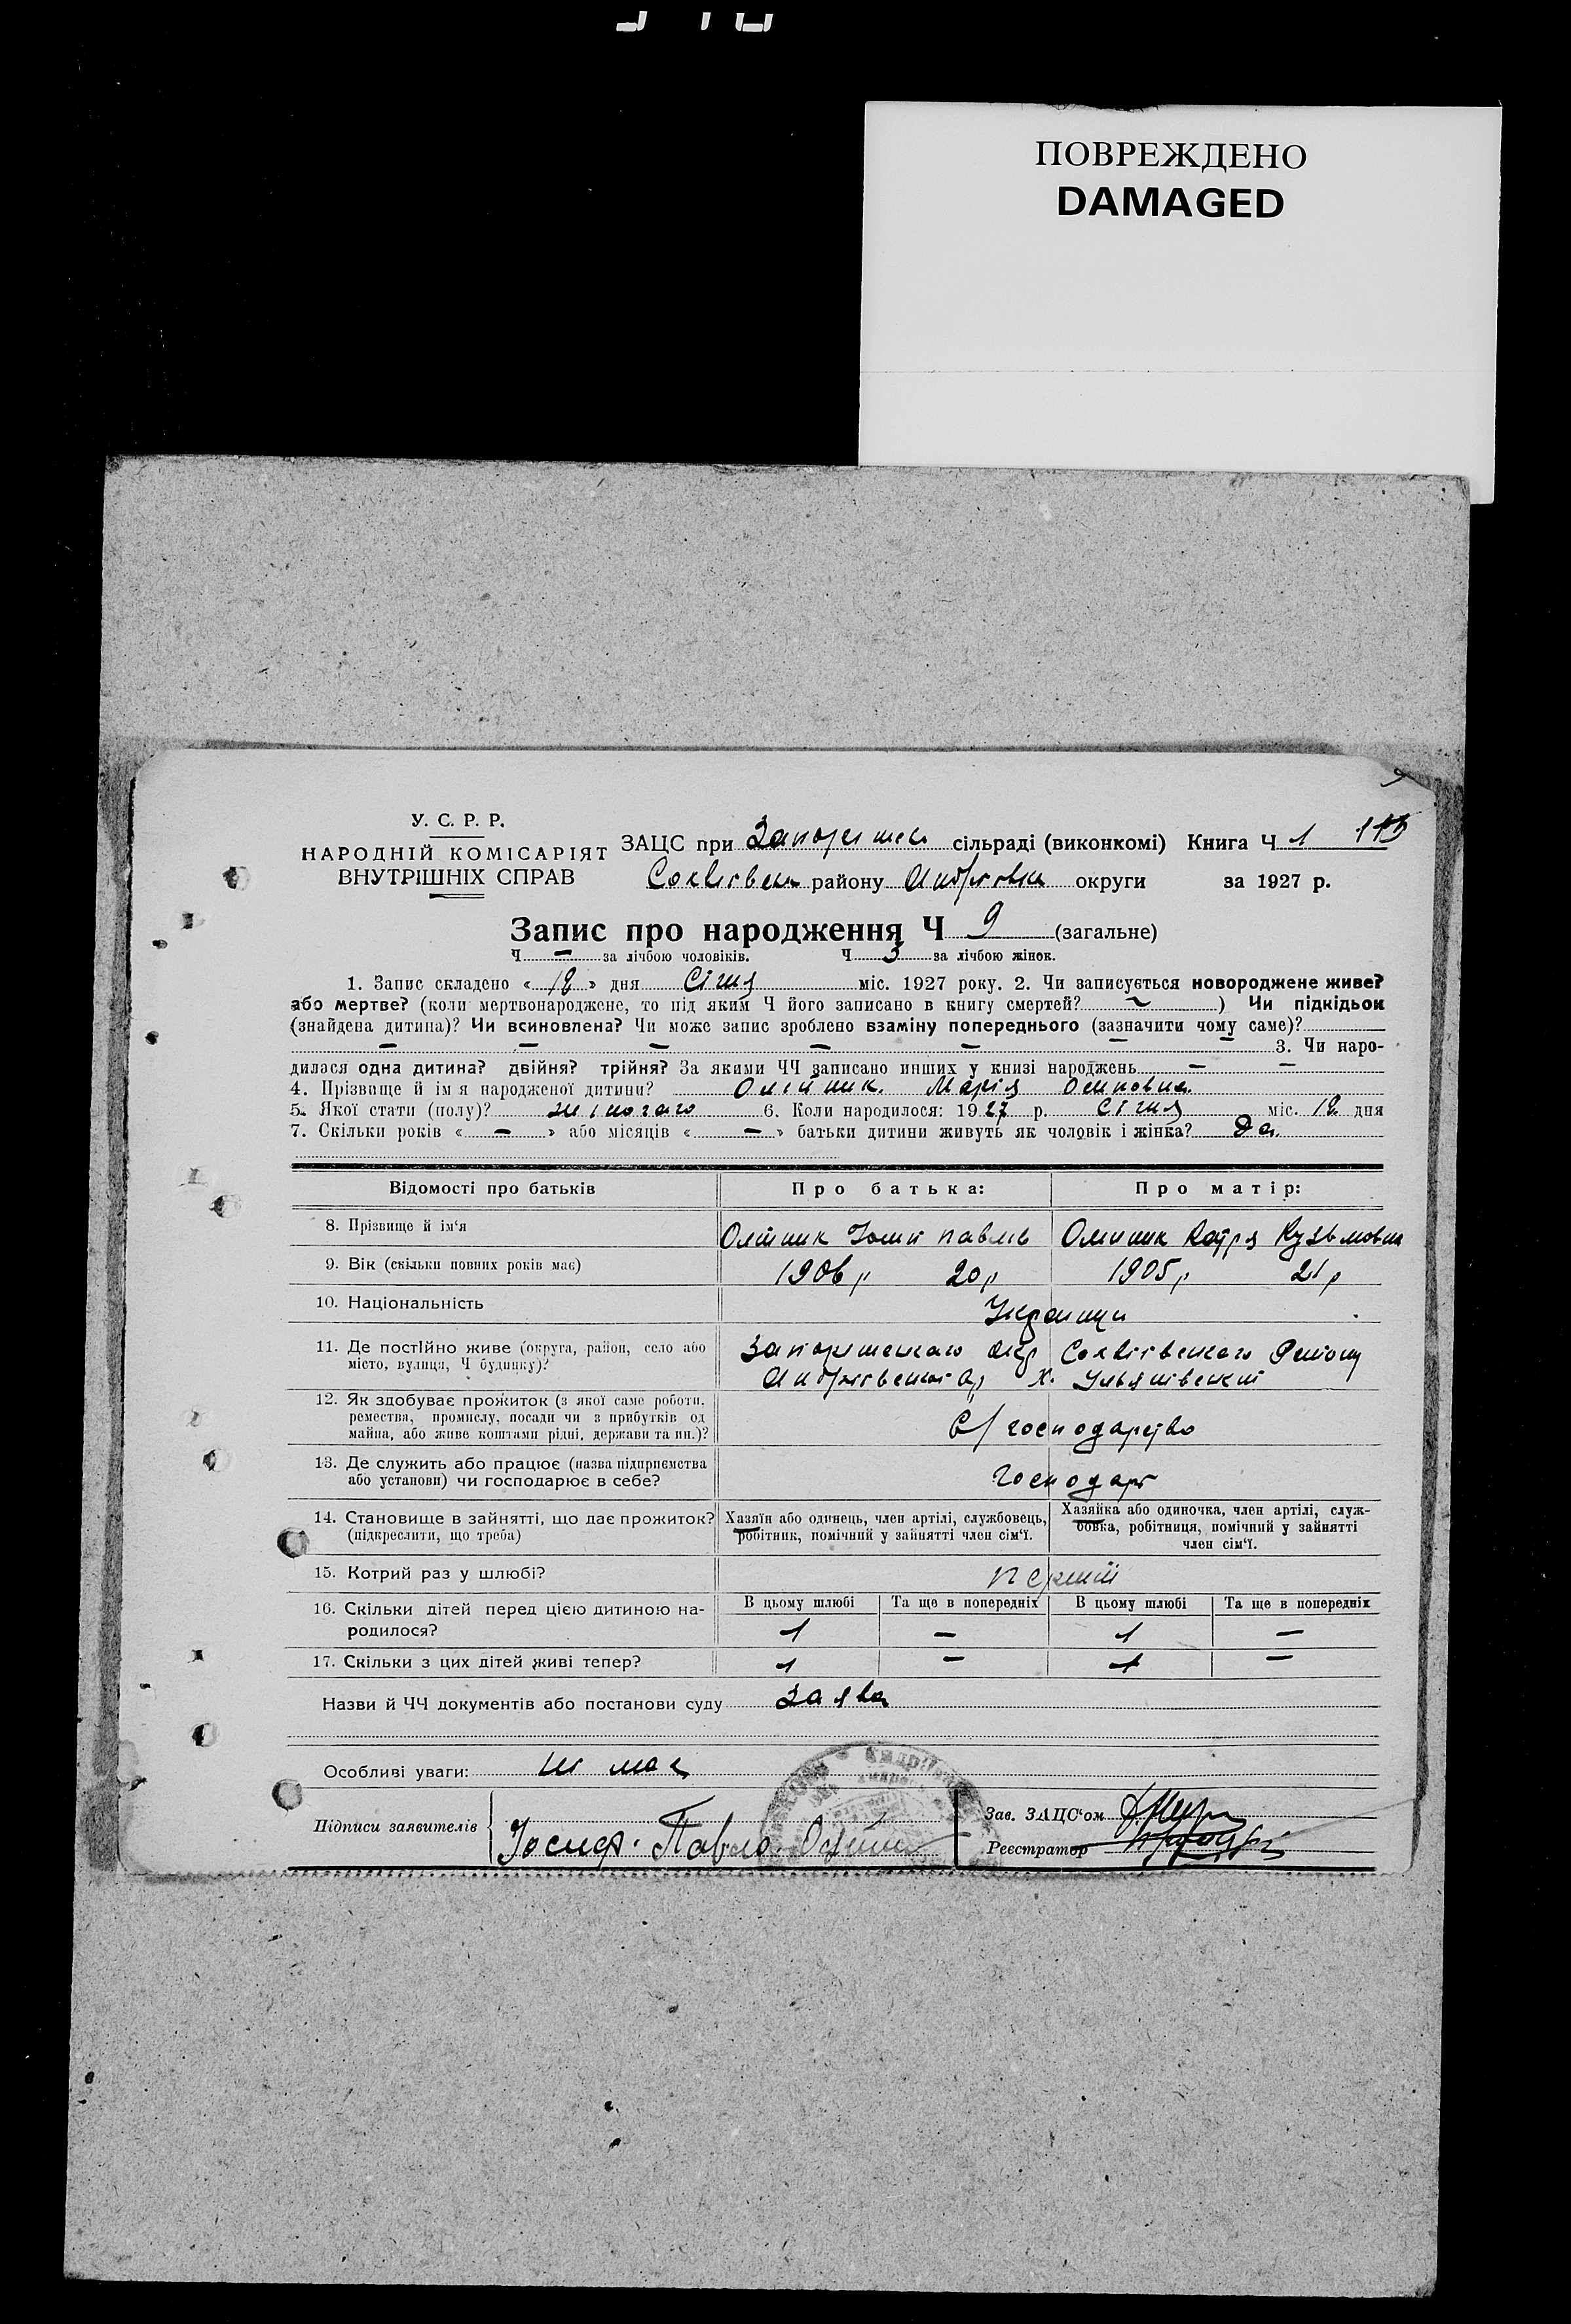 ПОВРЕЖДЕНО
DAMAGED
У. С. Р. Р.
НАРОДНІЙ КОМІСАРІЯТ
ВНУТРІШНІХ СПРАВ
ЗАЦС при сільраді (виконкомі) Книга Ч 1
району округи за 1927 р.
Запис про народження Ч 9 (загальне)
Ч — за лічбою чоловіків. Ч 3 за лічбою жінок.
1. Запис складено « 12 » дня Січня міс. 1927 року. 2. Чи записується новороджене живе?
або мертве? (коли мертвонароджене, то під яким Ч його записано в книгу смертей? ~ ) Чи підкідьок
(знайдена дитина)? Чи всиновлена? Чи може запис зроблено взаміну попереднього (зазначити чому саме)?
— — — — — — — 3. Чи наро-
дилася одна дитина? двійня? трійня? За якими ЧЧ записано инших у книзі народжень — —
4. Прізвище й ім я народженої дитини? Олійник Марія Осиповна
5. Якої стати (полу)? жіночаго 6. Коли народилося: 1927 р. Січня міс. 12 дня
7. Скільки років « — » або місяців « — » батьки дитини живуть як чоловік і жінка? Да
Відомості про батьків Про батька: Про матір:
8. Прізвище й ім'я Олійник Павлів Олійник Катря Кузьмовна
9. Вік (скільки повних років має) 1906 р 20 р 1905 р 21 р
10. Національність Українці
11. Де постійно живе (округа, район, село або
місто, вулиця, Ч будинку)?
12. Як здобуває прожиток (з якої саме роботи,
ремества, промислу, посади чи з прибутків од
майна, або живе коштами рідні, держави та ин.)? С/господарство
13. Де служить або працює (назва підприємства
або установи) чи господарює в себе? Господарі
14. Становище в зайнятті, що дає прожиток?
(підкреслити, що треба)
Хазяїн або одинець, член артілі, службовець,
робітник, помічний у зайнятті член сім'ї.
Хазяйка або одиночка, член артілі, служ-
бовка, робітниця, помічний у зайнятті
член сім'ї.
15. Котрий раз у шлюбі? перший
16. Скільки дітей перед цією дитиною на-
родилося?
В цьому шлюбі Та ще в попередніх В цьому шлюбі Та ще в попередніх
1 — 1 —
17. Скільки з цих дітей живі тепер? 1 — 1 —
Назви й ЧЧ документів або постанови суду заява
Особливі уваги: не має
Підписи заявителів Іосиф Павло
Зав. ЗАЦС'ом
Реєстратор